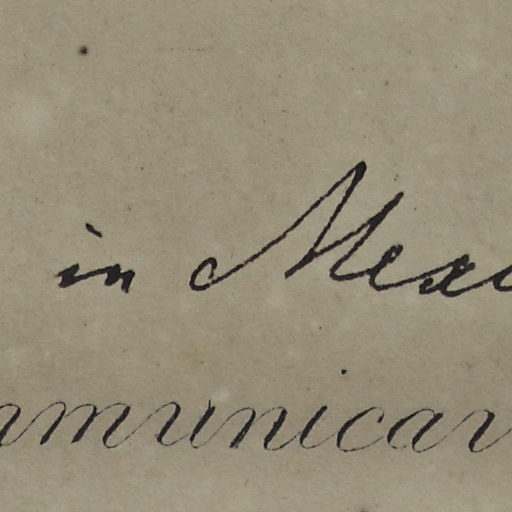 in Mexi
mmunicar